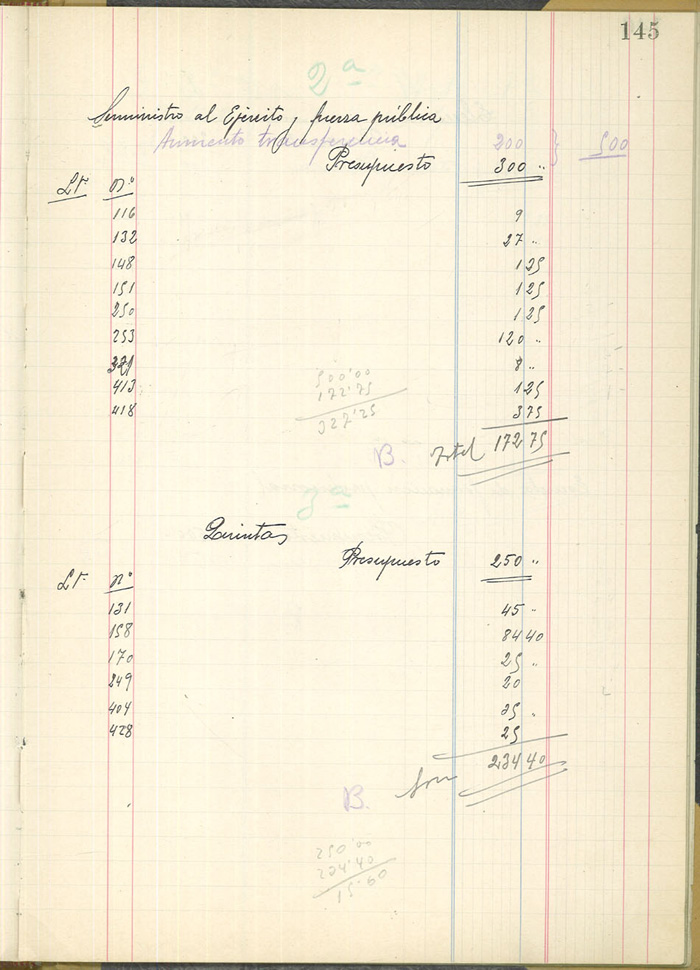 145
2ª
Suministro al Ejército y fuerza pública
Aumento transferencia 200 } 500
Presupuesto 300 "
Lt. Nº
116 9
132 27 "
148 1 25
151 1 25
250 1 25
253 120 "
321 8 "
413 1 25
418 3 75
500'00
172'75
327'25
B. Total 172 75
3ª
Quintas
Presupuesto 250 "
Lt. Nº
131 45 "
158 84 40
170 25 "
249 20
404 35 "
428 25
234 40
B.
250'00
234'40
15'60